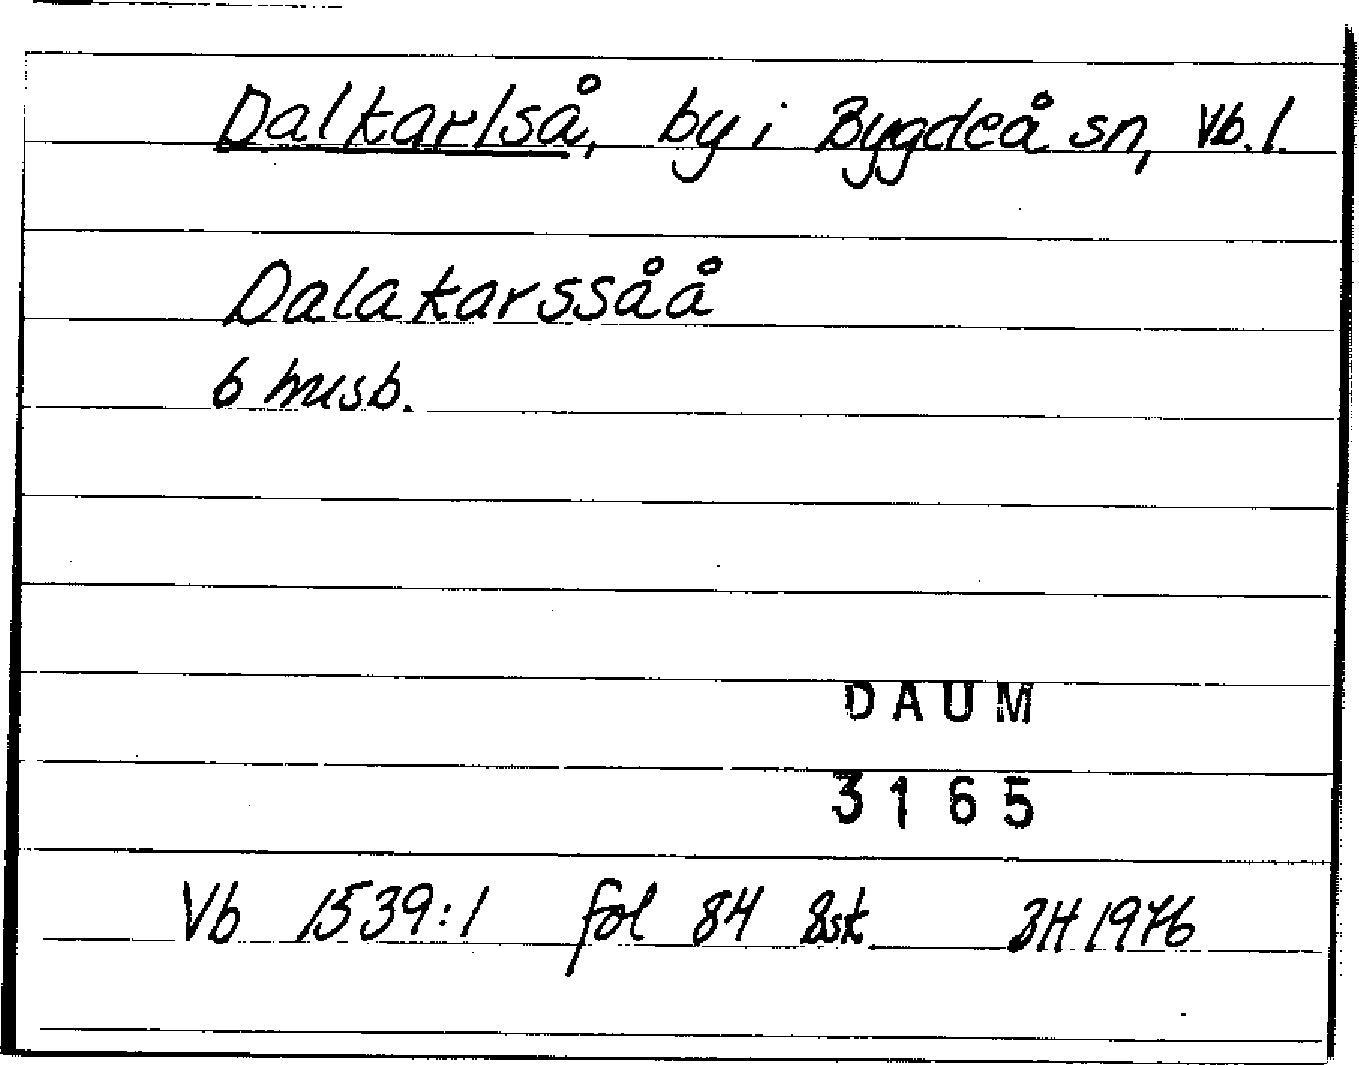 Dalkarlså, by i Bygdeå sn, Vb. l.
Dalakarssåå
6 husb.
DAUM
3165
Vb 1539:1 fol 84 Bsk BH 1976